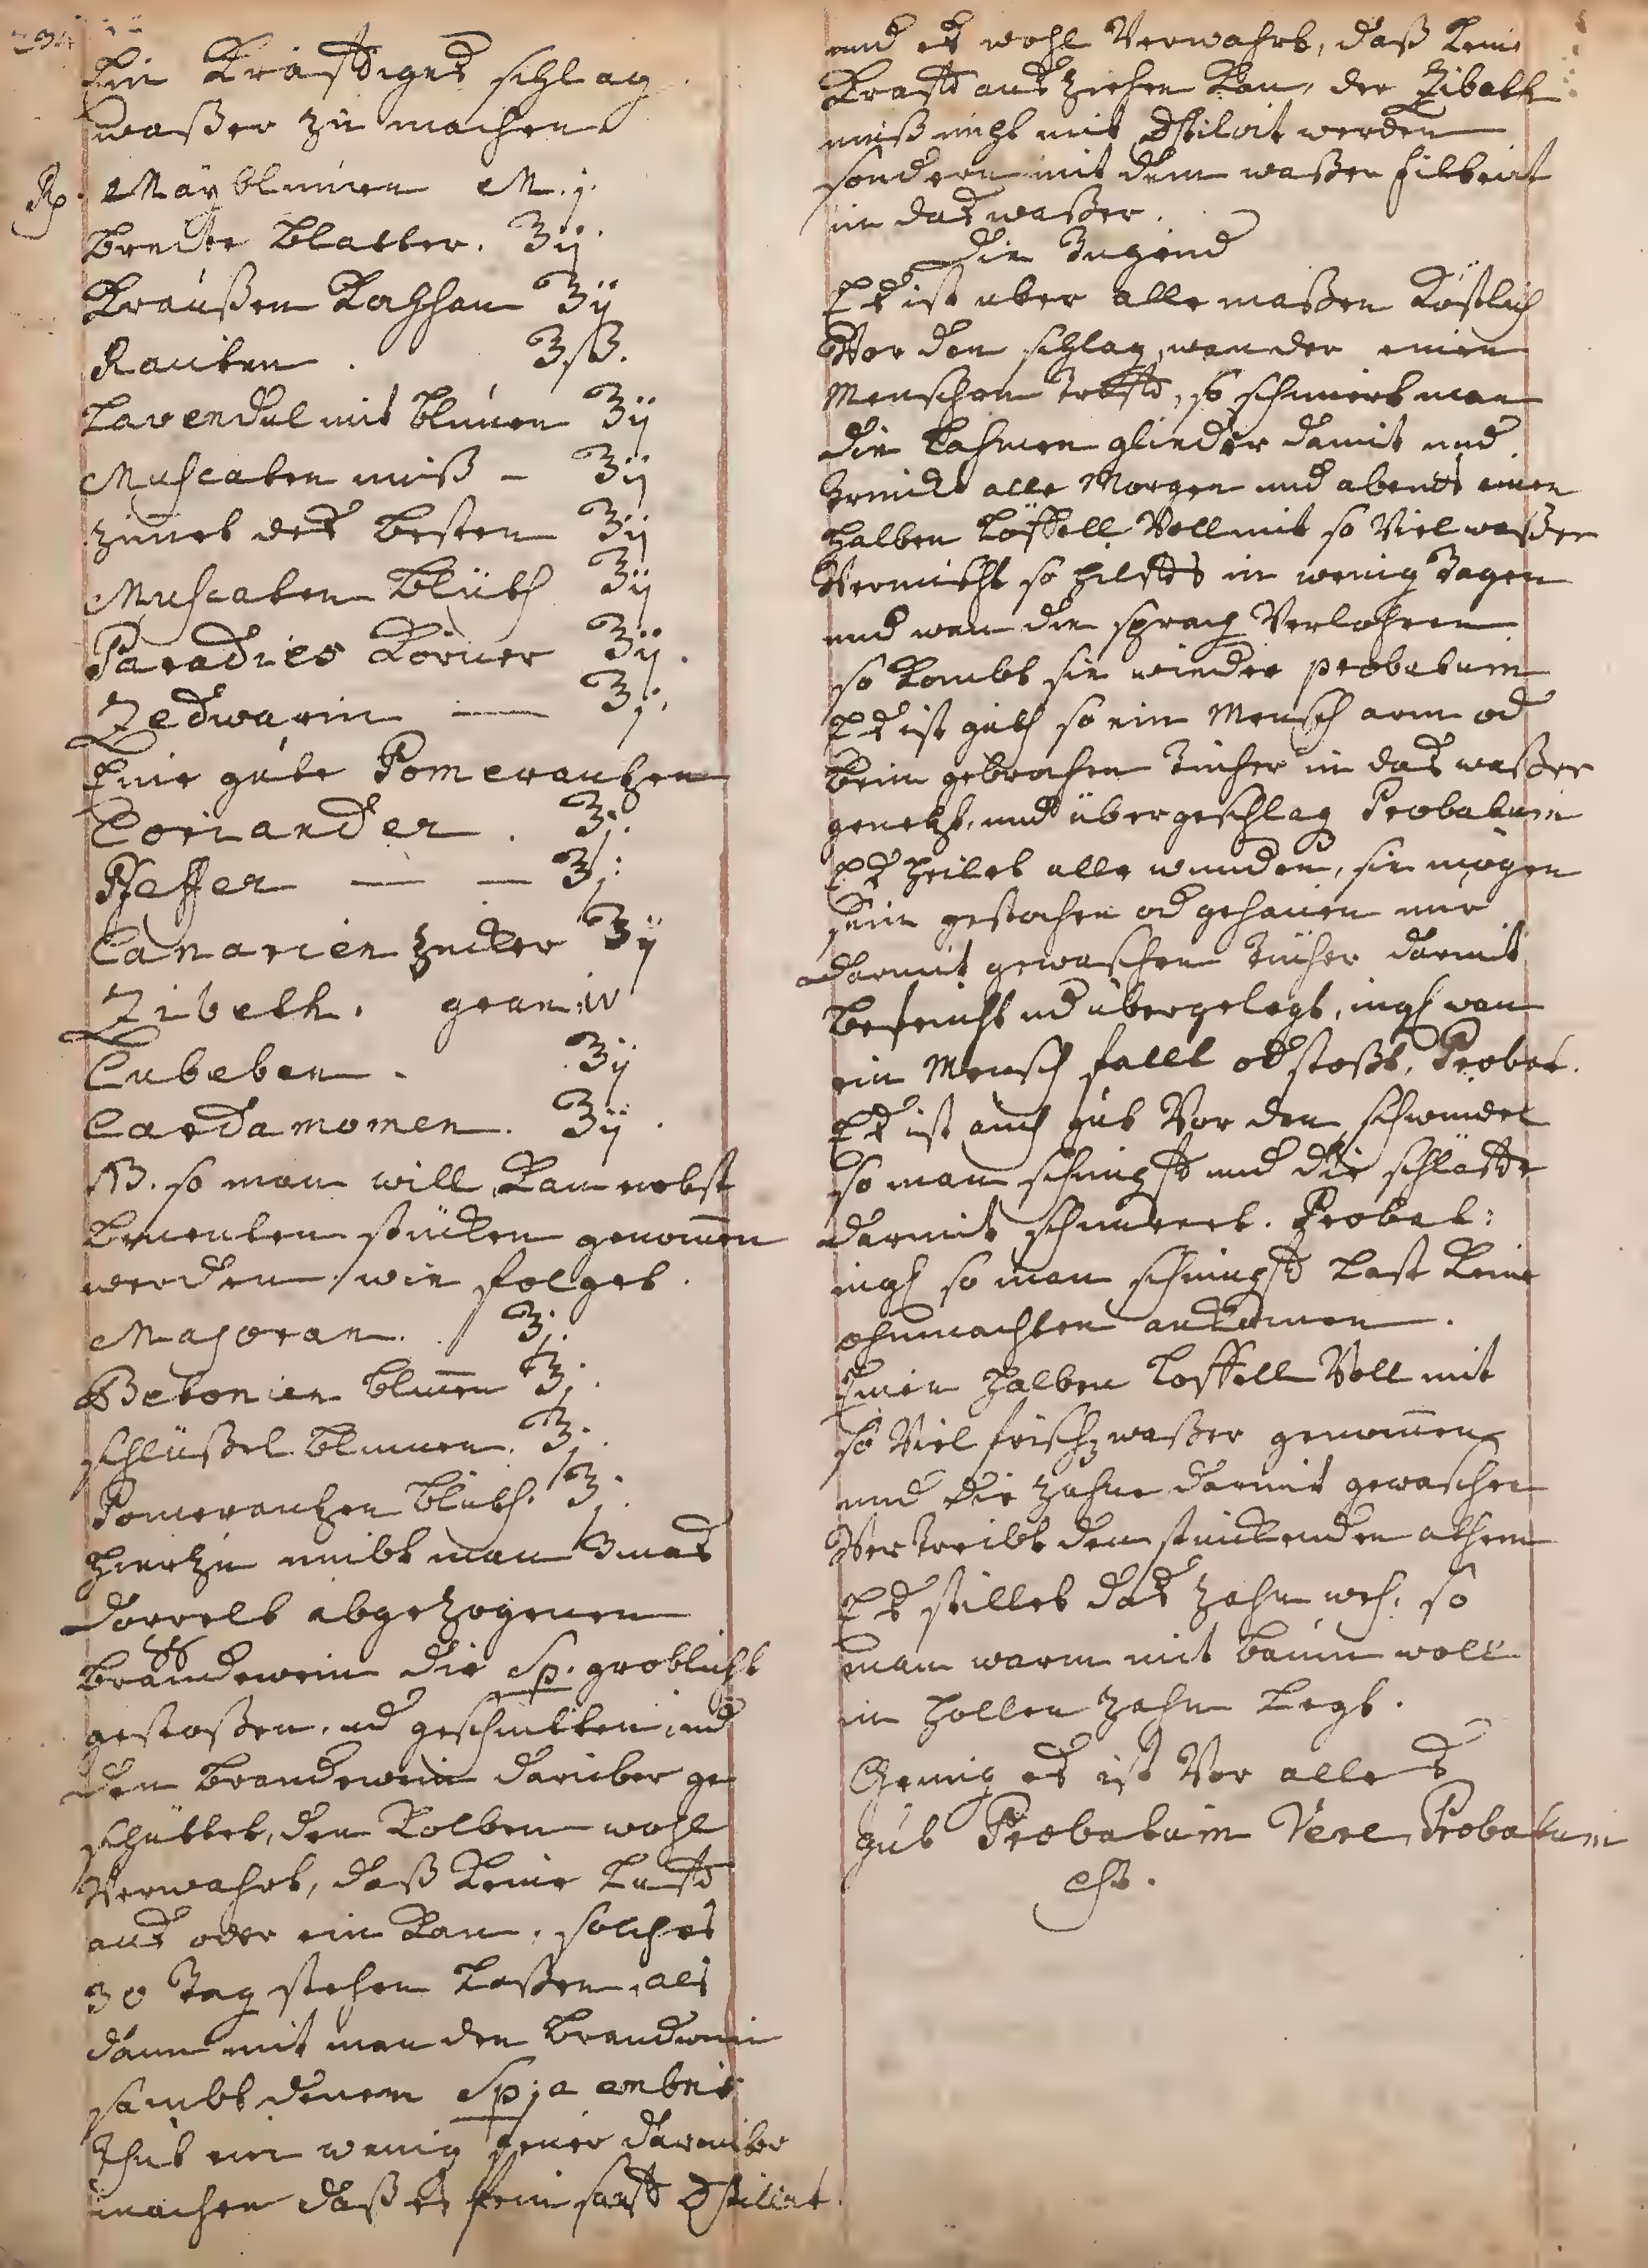 234
Ein Kräfftiges schlag
waßer zu machen
Rp. Mäyblumen M. j.
breite Blatter. ʒij
Kraußen Kohl ʒij
Rauten. ʒß.
Lavendul mit blumen ʒij
Muscaten nuß – ʒij
zimet des besten ʒij
Muscaten blüth ʒij
Paradies Körner ʒij.
Zedwarin — ʒj.
Eine gute Pomerantzen
Coriander. ʒj.
Pfeffer — — ʒj.
Canarien zucker ʒij
Zibeth. gran. iv
Cubeben. ʒij
Cardamomen. ʒij.
NB. so man will, Kan nebst
benenten stücken genom̄en
werden, wie folget.
Majoran. ʒj.
Betonien blum̄en ʒj.
schlüßel blumen. ʒj.
Pomerantzen blüth. ʒj.
hierzu nimbt man 3 mas
doppelt abgezogenen
brandewein die Sp. groblicht
gestoßen, ud geschnitten, und
den brandewein darüber ge
schüttet, den Kolben wohl
Verwahrt, daß Keine Lufft
aus oder ein Kan, solches
30 Tag stehen Laßen, als
dann mit man den brandwein
sambt denen Sp; a ambris
Thut ein wenig feuer darunter
machen daß es fein safft Dstilirt.
und es wohl Verwahrt, daß Keine
Krafft aus ziehen Kan, der Zibeth
muß nicht mit Dstilirt werden
sondern mit dem waßer filtrirt
in das waßer.
Die Tugend
Es ist uber alle maßen Köstlich
Vor den schlag, wan der einen
Menschen Trefft, so schmiert man
die Lahmen glieder damit und
trinckt alle Morgen und abents einen
halben Löffell Voll mit so Viel waßer
Vermischt so hilffts in wenig Tagen
und wan die sprach Verlohren
so Kombt sie wieder probatum
Es ist guth so ein Mensch arm od
bein gebrochen Tücher in das waßer
genetzt, und übergeschlag Probatum
Es heilet alle wunden, sie mögen
sein gestochen od gehauen nur
darmit gewaschen Tücher darmit
befeucht ud übergelegt, ingl wan
ein Mensch fallt od stoßt. Probat.
Es ist auch gut Vor den schwindel
so man schnupfft und die schläffe
darmit schmieret. Probat:
ingl so man schnupfft Last Keine
ohnmachten ankomen.
Einen halben Loffell Voll mit
so Viel frisch waßer genom̄en
und die zähne darmit gewaschen
Vertreibt den stinckenden athem
Es stillet das zahn weh, so
man warm mit baum woll
in hollen zahn Legt.
Genug es ist Vor alles
gut Probatum Vere Probatum
est.